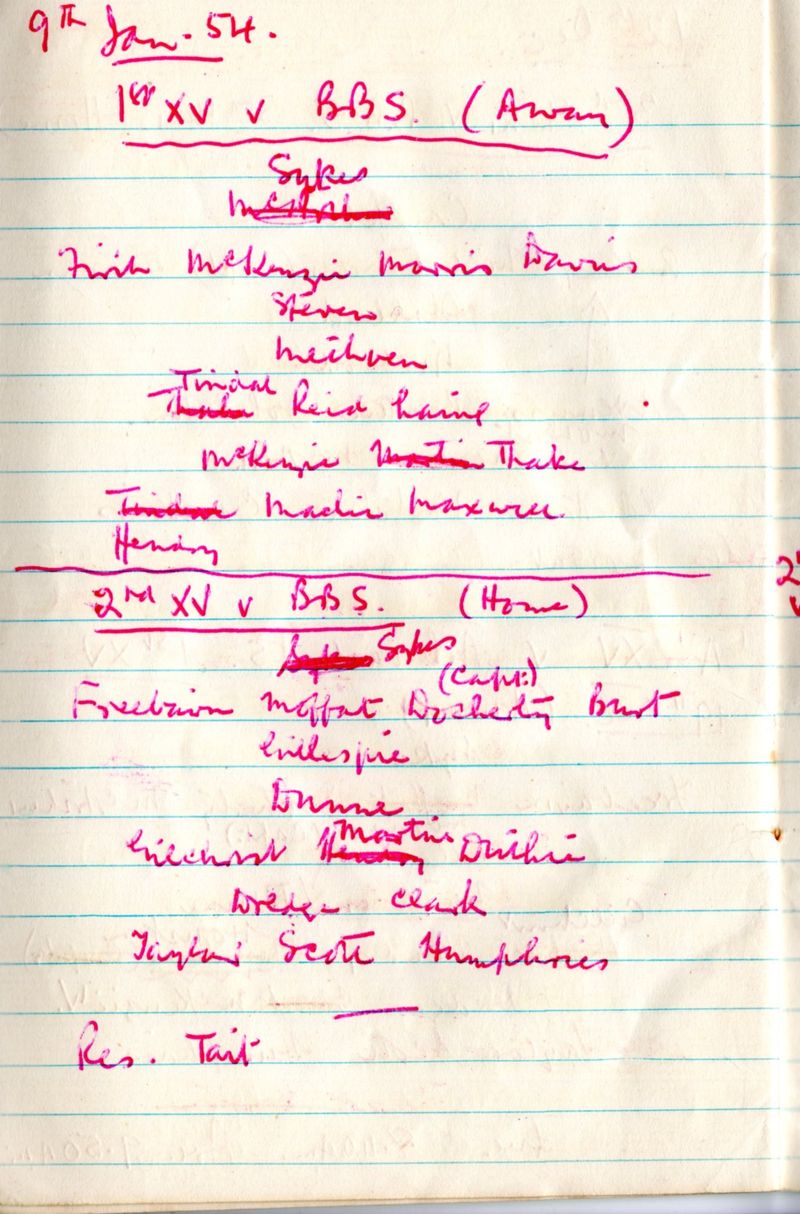 9TH Jan. 54.
1st XV v BBS. (Away)
Sykes
Firth McKenzie Morris Davies
Steven
Methven
Tindal
Thake Reid Laing
McKenzie Martin Thake
Tindal Mackie Maxwell
Hendry
2nd XV v BBS. (Home)
Sykes Sykes
(Capt:)
Freebairn Moffat Docherty Burt
Gillespie
Dunne
Martin
Gilchrist Hendry Duthie
Dredge Clark
Taylor Scott Humphries
Res. Tait